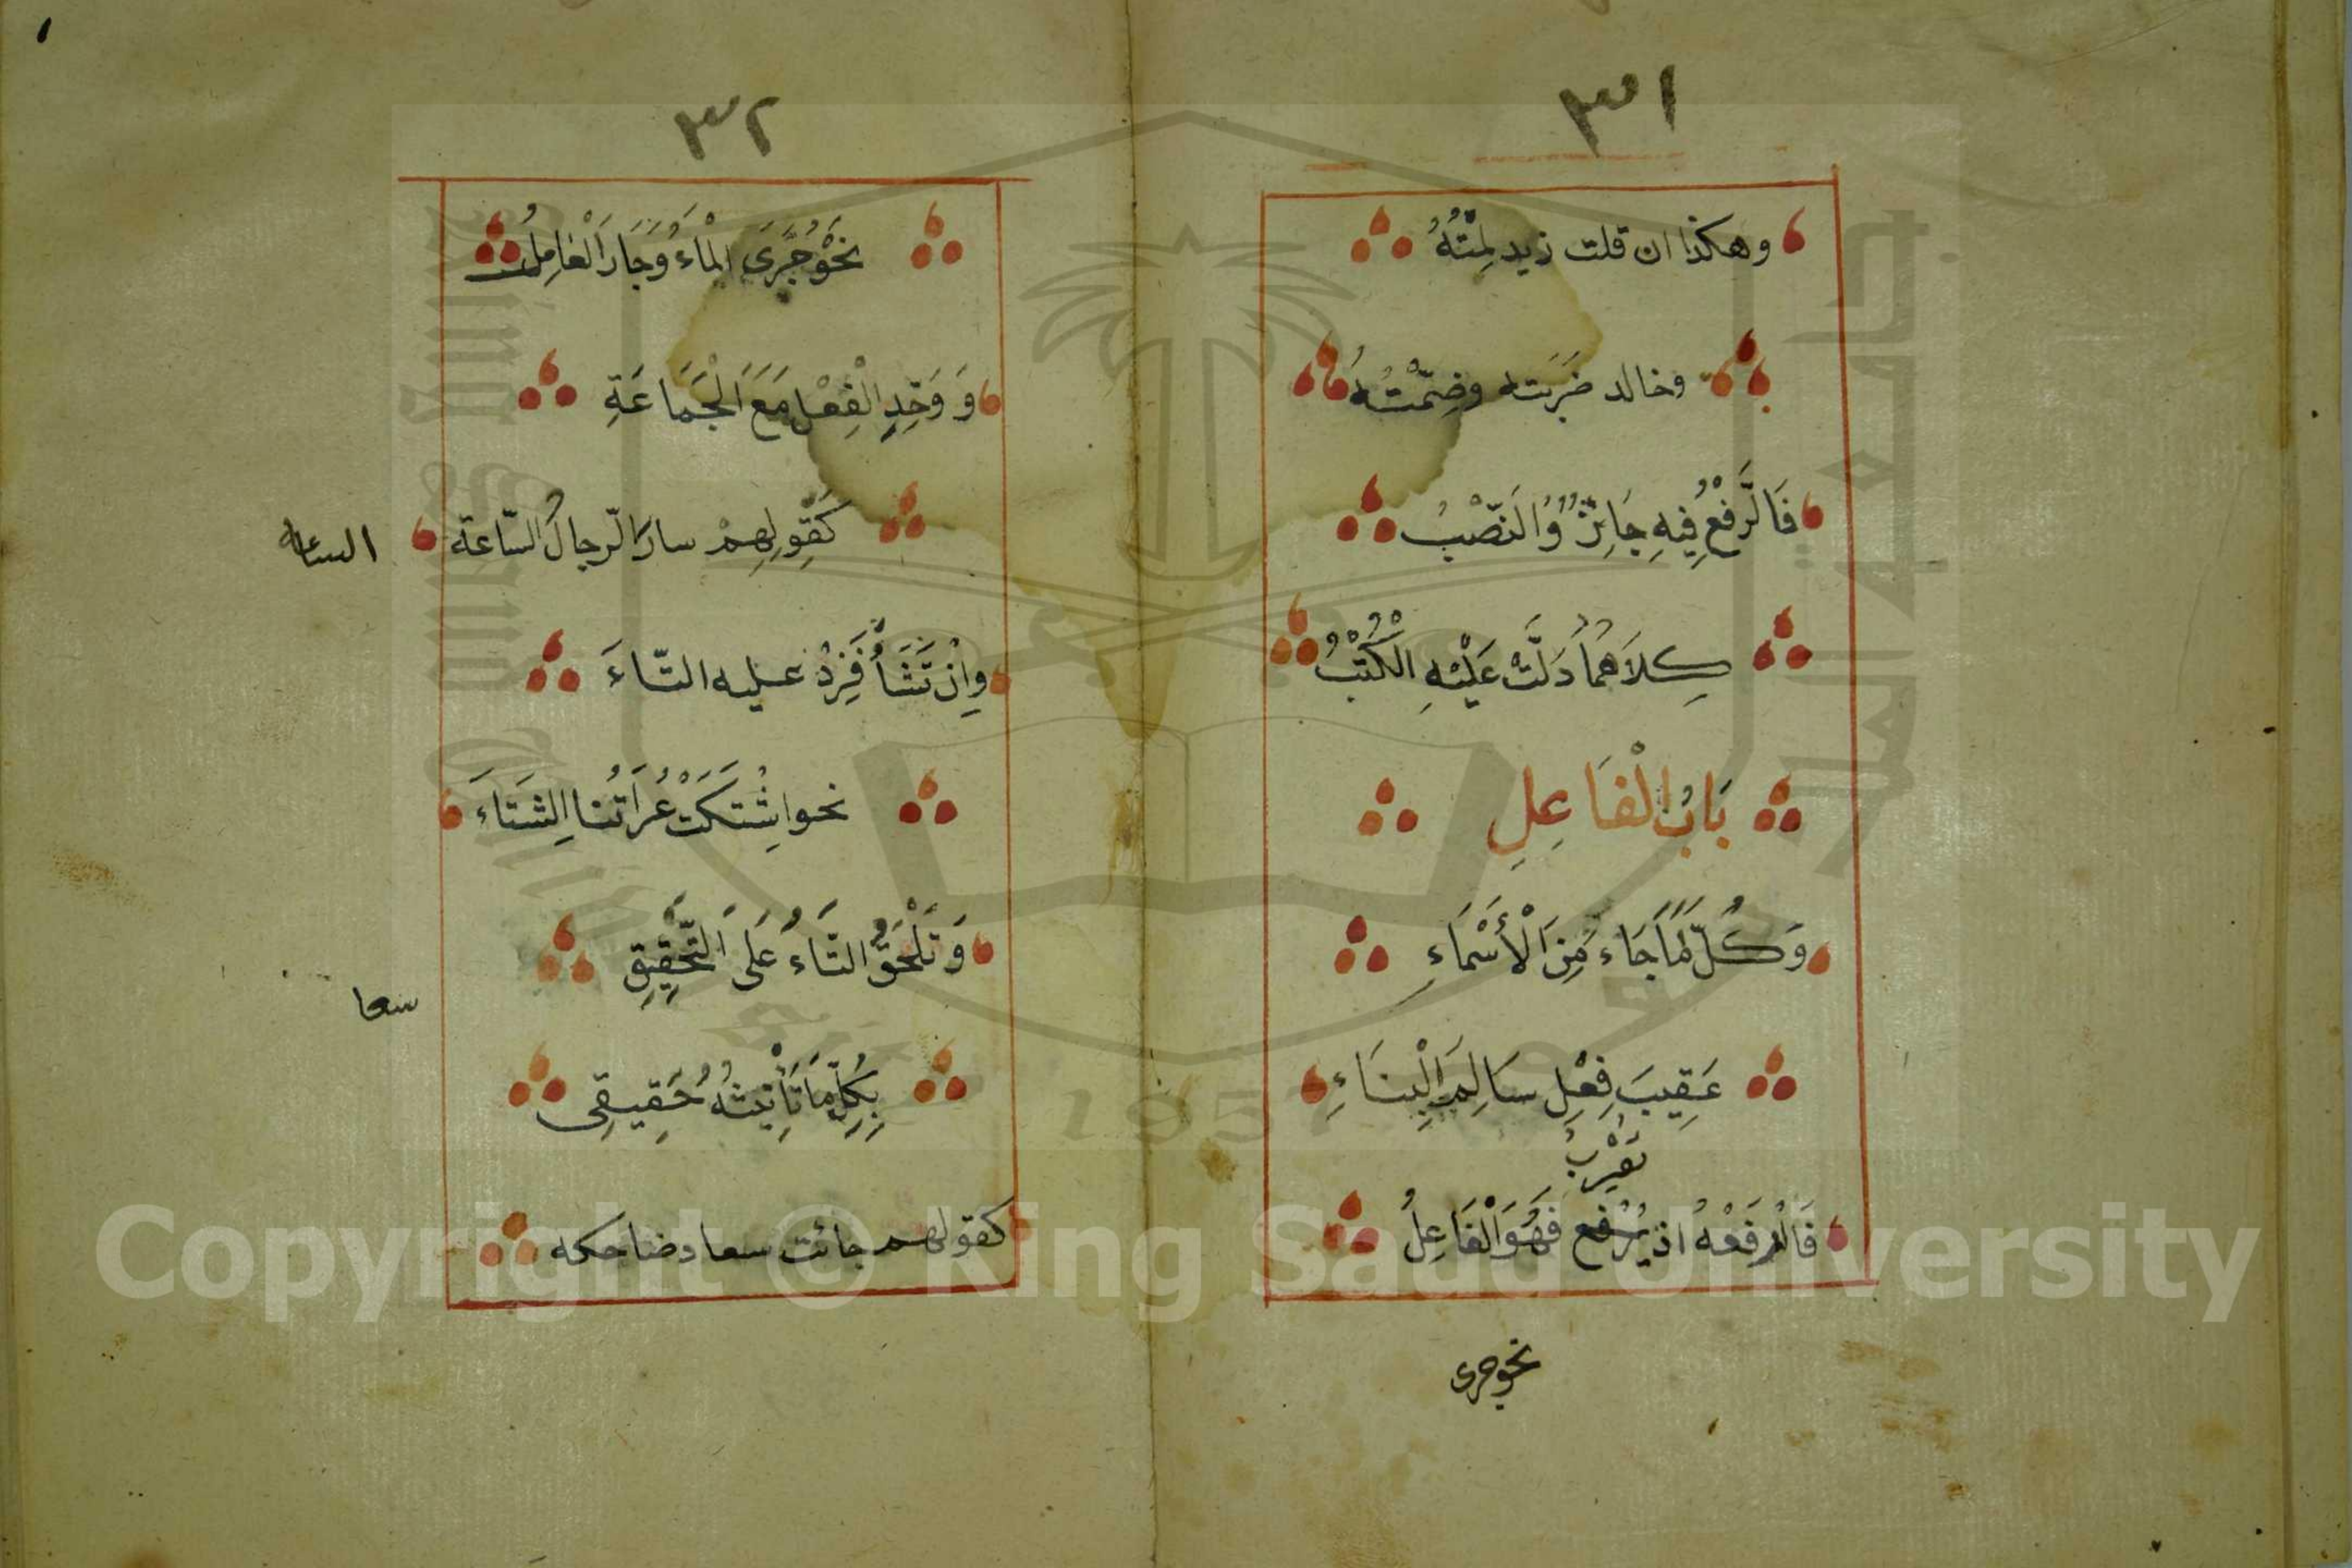 ٣١
وهكذا ان قلت زيد لمته
وخالد ضربته وضمته
فَالرَّفْعُ فِيهِ جَائِزٌ وَالنَّصْبُ
كِلَاهُمَا دَلَّتْ عَلَيْهِ الْكُتْبُ
بَابُ الْفَاعِلِ
وَكُلُّ مَا جَاءَ مِنَ الْأَسْمَاءِ
عَقِيبَ فِعْلٍ سَالِمِ الْبِنَاءِ
تعرب
فَارْفَعْهُ اذ يرفع فَهُوَ الْفَاعِلُ
نحو جرى
٣٢
نَحْوُ جَرَى الْمَاءُ وَجَارَ الْعَامِلُ
وَوَحِّدِ الْفِعْلَ مَعَ الْجَمَاعَةِ
كَقَوْلِهِمْ سار الرجالُ السّاعة
الساعه
وإنْ تَشَأْ فَزِدْ عليه التّاءَ
نحو اشْتَكَتْ عُرَاتُنا الشتاءَ
وَتَلْحَقُ التَّاءُ عَلَى التَّحْقِيقِ
بِكُلِّ مَا تَأْنِيثُهُ حَقِيقِى
سعا
كقولهم جائت سعاد ضاحكه
Copyright © King Saud University
1957